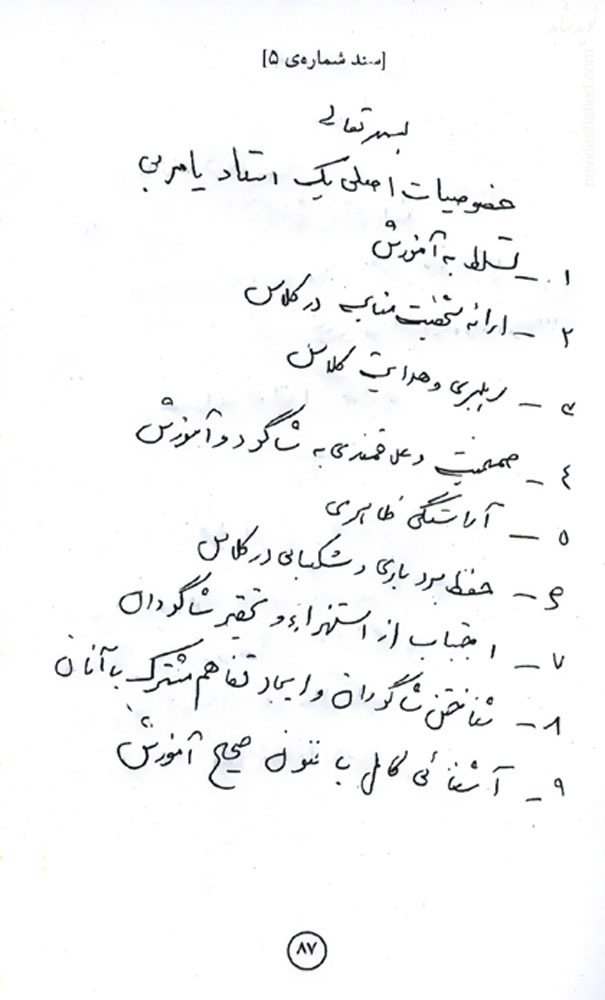 نوید شاهد
navideshahed.com
[سند شماره‌ی ۵]
بسمه تعالی
خصوصیات اصلی یک استاد یا مربی
۱ـ تسلط به آموزش
۲ـ ارائه شخصیت مناسب در کلاس
۳ـ رهبری و هدایت کلاس
۴ـ صمیمیت و علاقمندی به شاگرد و آموزش
۵ـ آراستگی ظاهری
۶ـ حفظ بردباری و شکیبایی در کلاس
۷ـ اجتناب از استهزاء و تحقیر شاگردان
۸ـ شناختن شاگردان و ایجاد تفاهم مشترک با آنان
۹ـ آشنائی کامل با فنون صحیح آموزش
۸۷